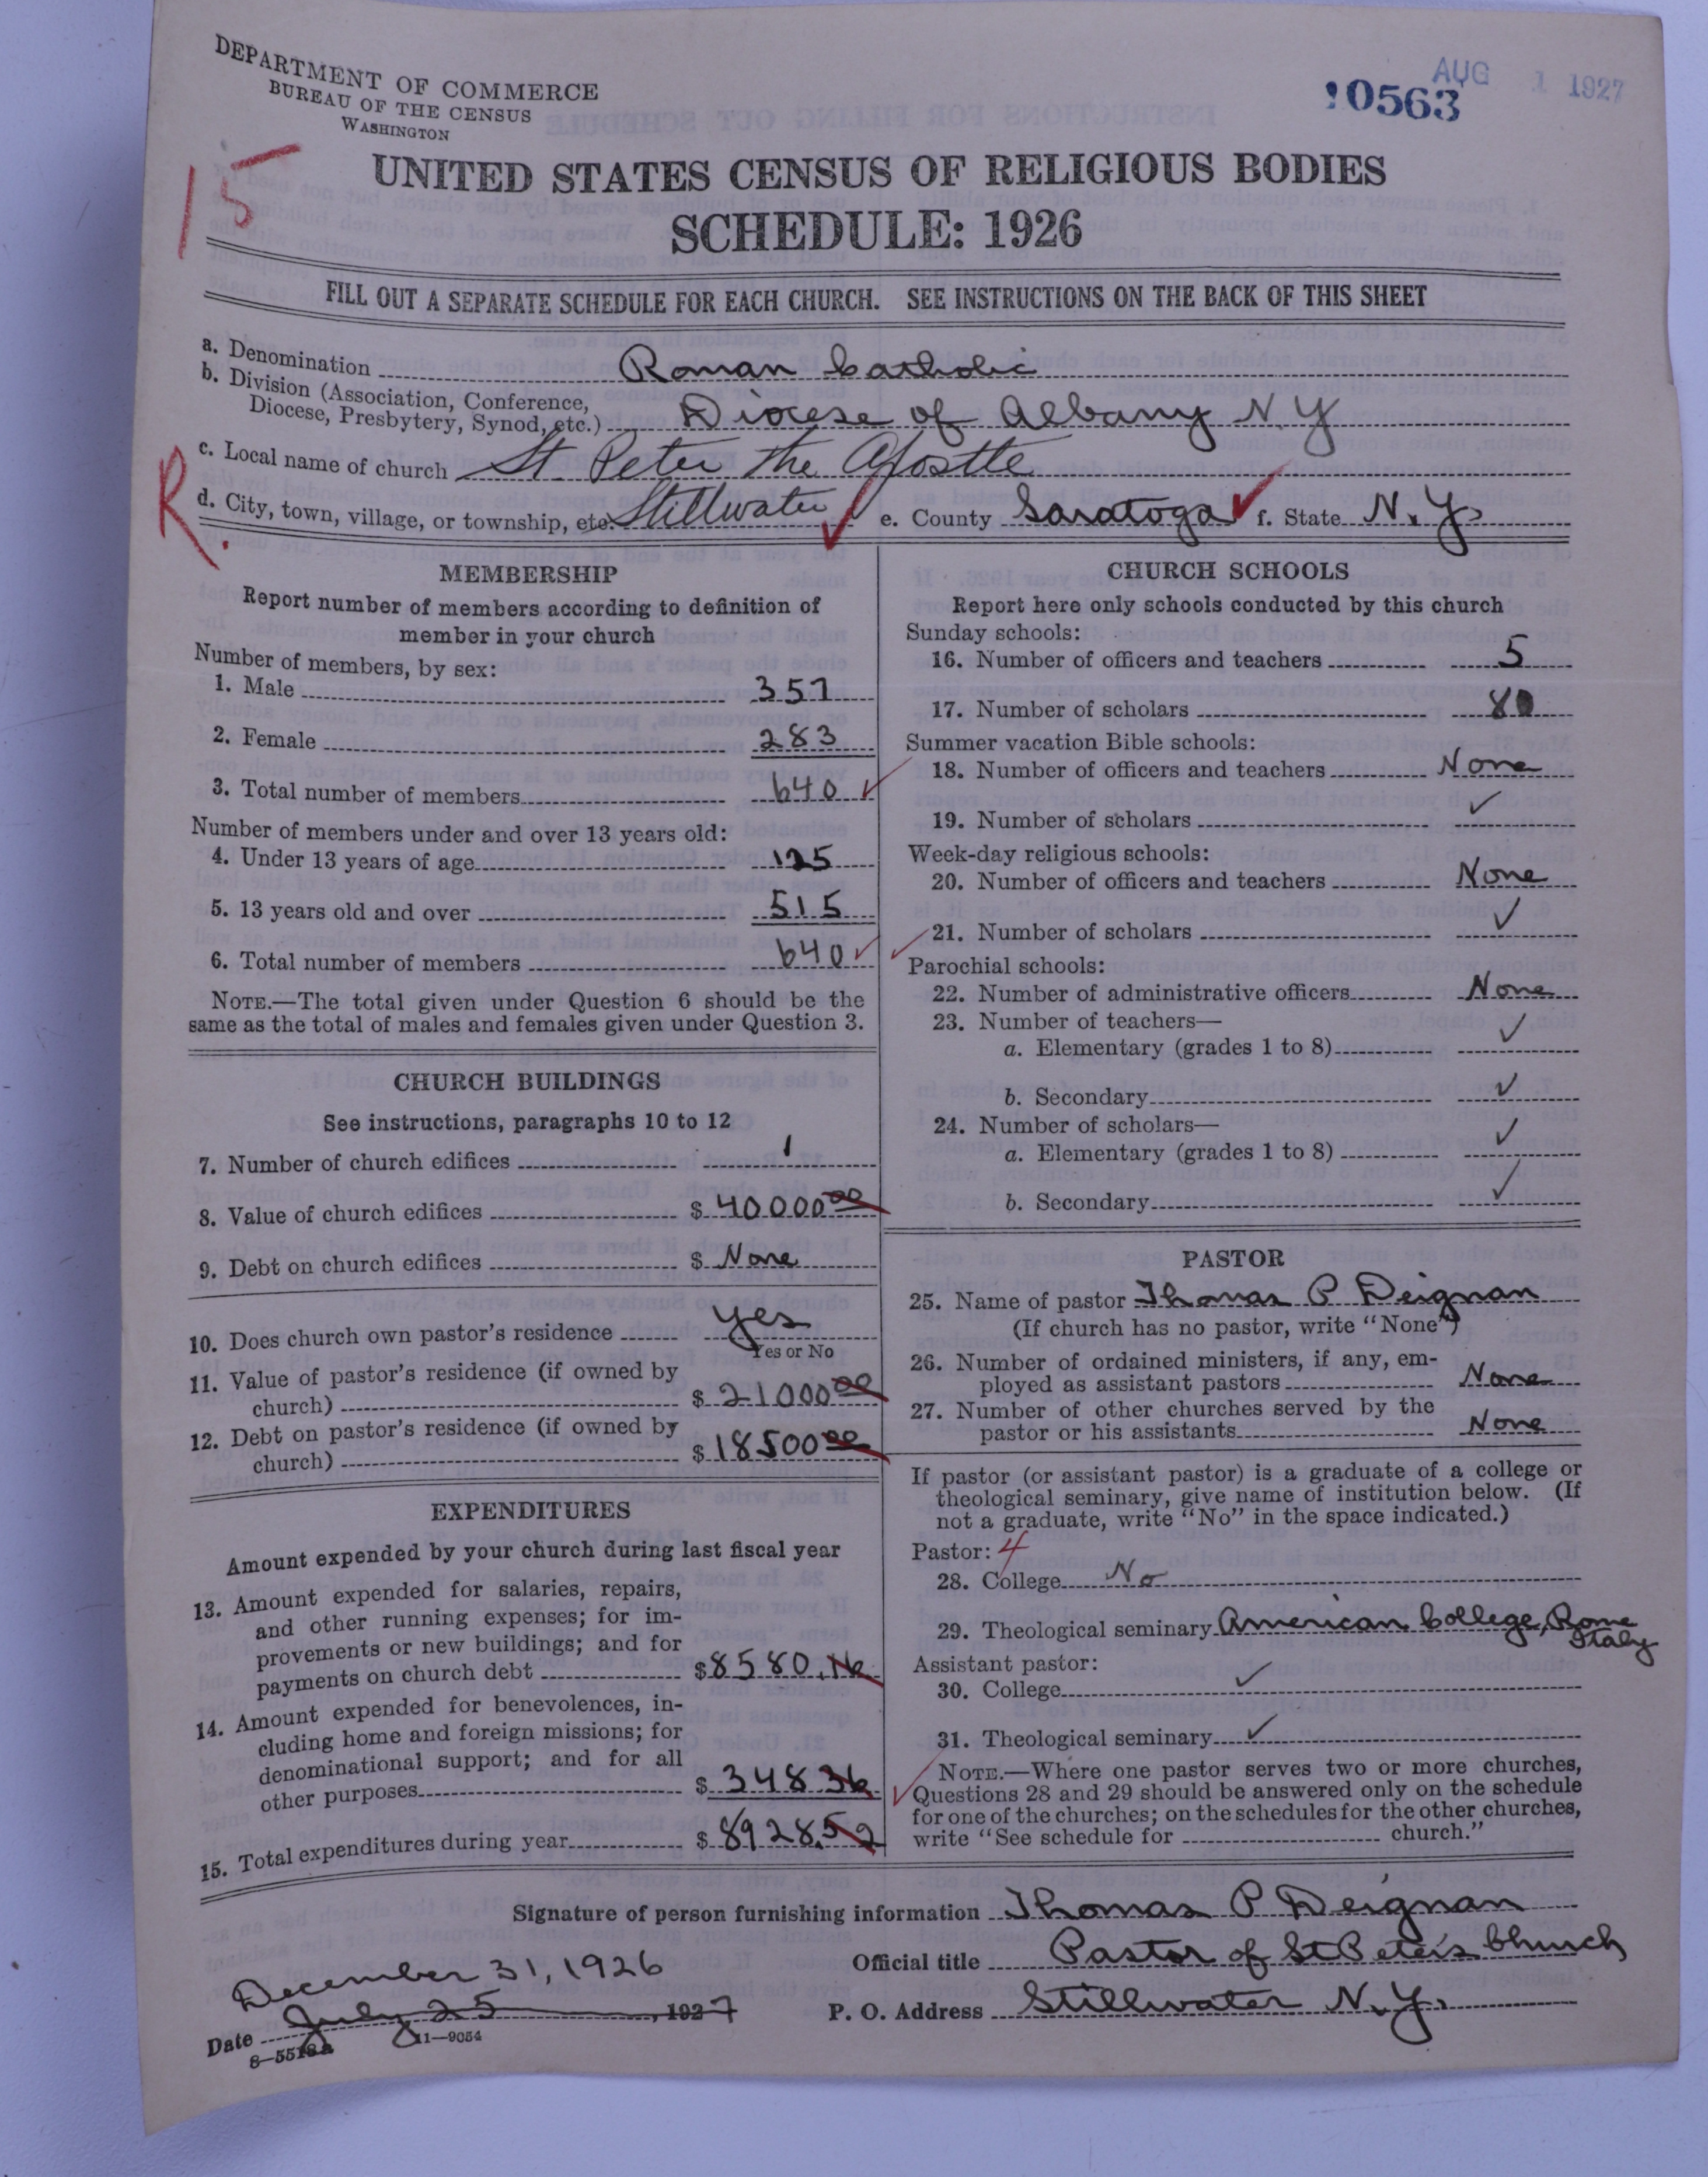 DEPARTMENT OF COMMERCE
BUREAU OF THE CENSUS
WASHINGTON
AUG 1 1927
10563
15
UNITED STATES CENSUS OF RELIGIOUS BODIES
SCHEDULE: 1926
FILL OUT A SEPARATE SCHEDULE FOR EACH CHURCH. SEE INSTRUCTIONS ON THE BACK OF THIS SHEET
a. Denomination Roman Catholic
b. Division (Association, Conference,
Diocese, Presbytery, Synod, etc.) Diocese of Albany N.Y
c. Local name of church St. Peter the Apostle
R.
d. City, town, village, or township, etc. Stillwater ✓ e. County Saratoga ✓ f. State N.Y.
MEMBERSHIP
Report number of members according to definition of
member in your church
Number of members, by sex:
1. Male 357
2. Female 283
3. Total number of members 640 ✓
Number of members under and over 13 years old:
4. Under 13 years of age 125
5. 13 years old and over 515
6. Total number of members 640 ✓
NOTE.—The total given under Question 6 should be the
same as the total of males and females given under Question 3.
CHURCH BUILDINGS
See instructions, paragraphs 10 to 12
7. Number of church edifices 1
8. Value of church edifices $ 40000 00
9. Debt on church edifices $ None
10. Does church own pastor's residence Yes
Yes or No
11. Value of pastor's residence (if owned by
church) $ 21000 00
12. Debt on pastor's residence (if owned by
church) $ 18500 00
EXPENDITURES
Amount expended by your church during last fiscal year
13. Amount expended for salaries, repairs,
and other running expenses; for im-
provements or new buildings; and for
payments on church debt $ 8580.16
14. Amount expended for benevolences, in-
cluding home and foreign missions; for
denominational support; and for all
other purposes $ 348 36
15. Total expenditures during year $ 8928.52
CHURCH SCHOOLS
Report here only schools conducted by this church
Sunday schools:
16. Number of officers and teachers 5
17. Number of scholars 80
Summer vacation Bible schools:
18. Number of officers and teachers None
19. Number of scholars ✓
Week-day religious schools:
20. Number of officers and teachers None
21. Number of scholars ✓
Parochial schools:
22. Number of administrative officers None
23. Number of teachers—
a. Elementary (grades 1 to 8) ✓
b. Secondary ✓
24. Number of scholars—
a. Elementary (grades 1 to 8) ✓
b. Secondary ✓
PASTOR
25. Name of pastor Thomas P Deignan
(If church has no pastor, write "None")
26. Number of ordained ministers, if any, em-
ployed as assistant pastors None
27. Number of other churches served by the
pastor or his assistants None
If pastor (or assistant pastor) is a graduate of a college or
theological seminary, give name of institution below. (If
not a graduate, write "No" in the space indicated.)
Pastor: 4
28. College No
29. Theological seminary American College, Rome
Italy
Assistant pastor:
30. College ✓
31. Theological seminary ✓
NOTE.—Where one pastor serves two or more churches,
Questions 28 and 29 should be answered only on the schedule
for one of the churches; on the schedules for the other churches,
write "See schedule for church."
Signature of person furnishing information Thomas P Deignan
Official title Pastor of St Peter's Church
December 31, 1926
Date July 25, 1927
P. O. Address Stillwater N.Y.
8—5518a 11—9054